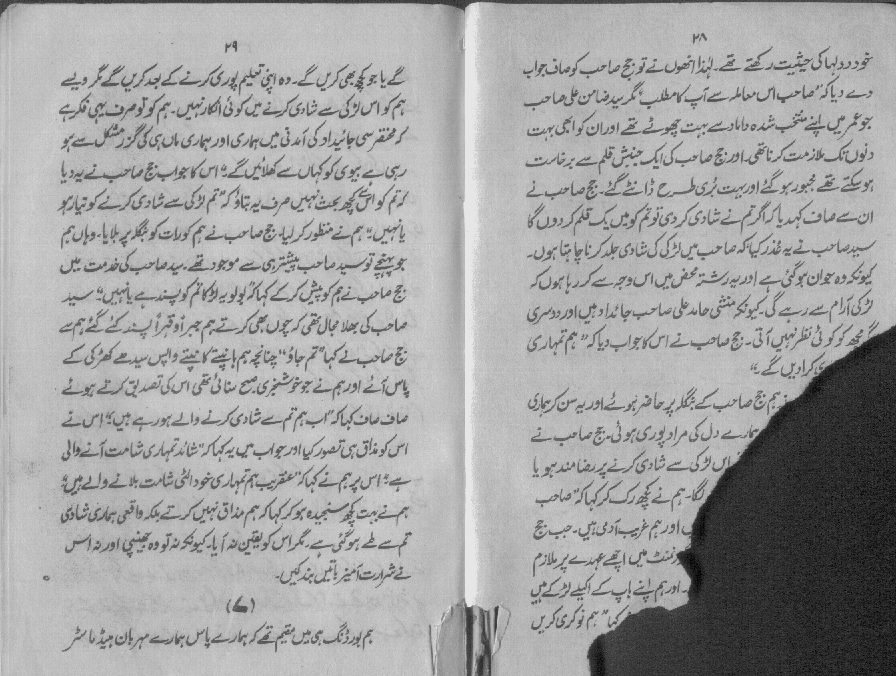 ۲۸
خود دولہا کی حیثیت رکھتے تھے۔ لہٰذا انھوں نے تو جج صاحب کو صاف جواب
دے دیا کہ "صاحب اس معاملہ سے آپ کا مطلب" مگر سید ضامن علی صاحب
جو عمر میں اپنے منتخب شدہ داماد سے بہت چھوٹے تھے اور ان کو ابھی بہت
دنوں تک ملازمت کرنا تھی۔ اور جج صاحب کی ایک جنبش قلم سے برخاست
ہو سکتے تھے مجبور ہو گئے اور بہت بُری طرح ڈانٹے گئے۔ جج صاحب نے
ان سے صاف کہدیا کہ اگر تم نے شادی کر دی تو تم کو میں یک قلم کر دوں گا
سید صاحب نے یہ عُذر کیا کہ صاحب میں لڑکی کی شادی جلد کرنا چاہتا ہوں۔
کیونکہ وہ جوان ہو گئی ہے اور یہ رشتہ محض میں اس وجہ سے کر رہا ہوں کہ
لڑکی آرام سے رہے گی۔ کیونکہ منشی حامد علی صاحب جائداد ہیں اور دوسری
مجھ کو کوئی نظر نہیں آتی۔ جج صاحب نے اس کا جواب دیا کہ "ہم تمہاری
کرا دیں گے۔"
ہم جج صاحب کے بنگلہ پر حاضر ہوئے اور یہ سن کر ہماری
ہمارے دل کی مراد پوری ہوئی۔ جج صاحب نے
اس لڑکی سے شادی کرنے پر رضامند ہو یا
لگا۔ ہم نے کچھ رک کر کہا کہ "صاحب
اور ہم غریب آدمی ہیں۔ جب جج
میں اچھے عہدے پر ملازم
اور ہم اپنے باپ کے اکیلے لڑکے ہیں
کہا "ہم نوکری کریں
۲۹
گے یا جو کچھ بھی کریں گے۔ وہ اپنی تعلیم پوری کرنے کے بعد کریں گے مگر ویسے
ہم کو اس لڑکی سے شادی کرنے میں کوئی انکار نہیں۔ ہم کو تو صرف یہی فکر ہے
کہ مختصر سی جائیداد کی آمدنی میں ہماری اور ہماری ماں ہی کی گزر مشکل سے ہو
رہی ہے بیوی کو کہاں سے کھلائیں گے" اس کا جواب جج صاحب نے یہ دیا
کہ تم کو اس سے کچھ بحث نہیں صرف یہ بتاؤ کہ "تم لڑکی سے شادی کرنے کو تیار ہو
یا نہیں" ہم نے منظور کر لیا۔ جج صاحب نے ہم کو رات کو بنگلہ پر بلایا۔ وہاں ہم
جو پہنچے تو سید صاحب پیشتر ہی سے موجود تھے۔ سید صاحب کی خدمت میں
جج صاحب نے ہم کو پیش کر کے کہا کہ "بولو یہ لڑکا تم کو پسند ہے یا نہیں" سید
صاحب کی بھلا مجال تھی کہ چوں بھی کرتے ہم جبراً و قہراً پسند کئے گئے ہم سے
جج صاحب نے کہا "تم جاؤ" چنانچہ ہم ہانپتے کانپتے واپس سیدھے کھڑکی کے
پاس آئے اور ہم نے جو خوشخبری صبح سنائی تھی اس کی تصدیق کرتے ہوئے
صاف صاف کہا کہ "اب ہم تم سے شادی کرنے والے ہو رہے ہیں" اس نے
اس کو مذاق ہی تصور کیا اور جواب میں یہ کہا کہ "شائد تمہاری شامت آنے والی
ہے" اس پر ہم نے کہا کہ "عنقریب ہم تمہاری خود الٹی شامت بلانے والے ہیں"
ہم نے بہت کچھ سنجیدہ ہو کر کہا کہ ہم مذاق نہیں کرتے بلکہ واقعی ہماری شادی
تم سے طے ہو گئی ہے۔ مگر اس کو یقین نہ آیا۔ کیونکہ نہ تو وہ جھینپی اور نہ اس
نے شرارت آمیز باتیں بند کیں۔
(۷)
ہم بورڈنگ ہی میں مقیم تھے کہ ہمارے پاس ہمارے مہربان ہیڈ ماسٹر